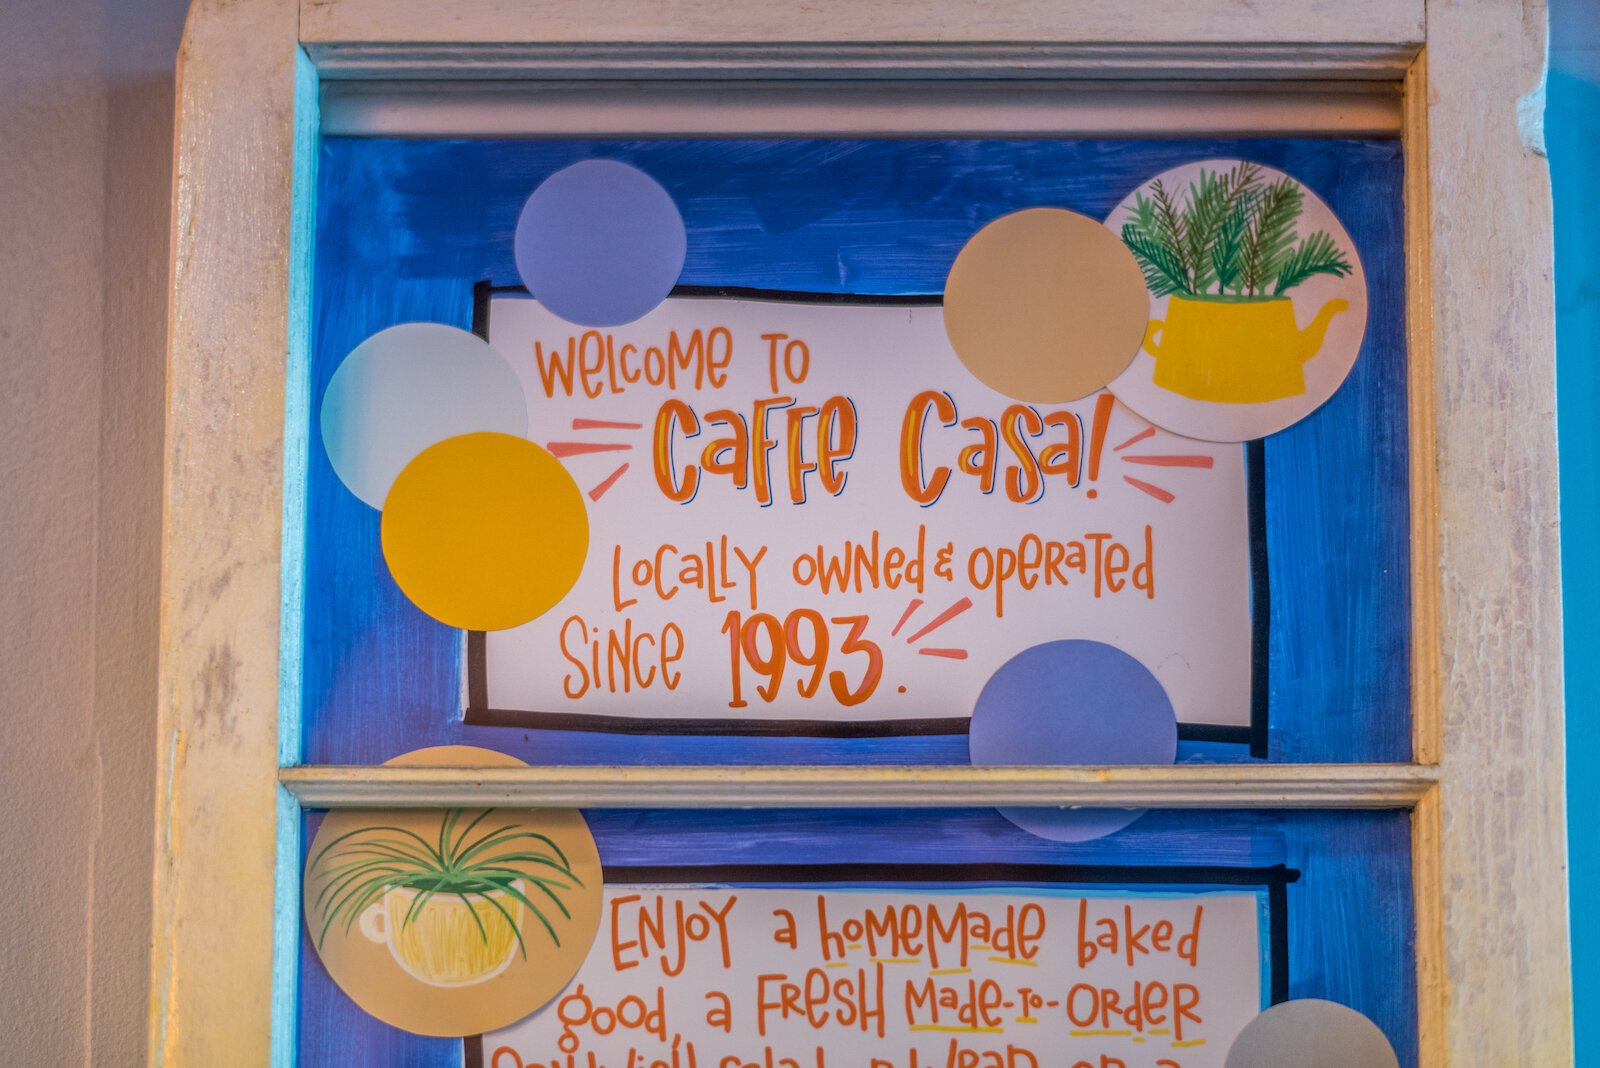 Welcome to
Caffe Casa!
Locally owned & operated
since 1993.
Enjoy a homemade baked
good, a fresh made-to-order